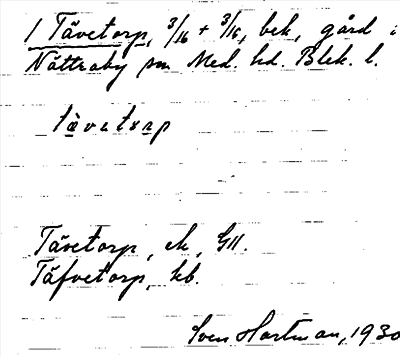 1 Tävetorp, 3/16 + 3/16, bek, gård i
Nättraby sn Med. hd. Blek. l.
tävetorp
Tävetorp, ek, GH.
Täfvetorp, kb.
Sven Hartman, 1930